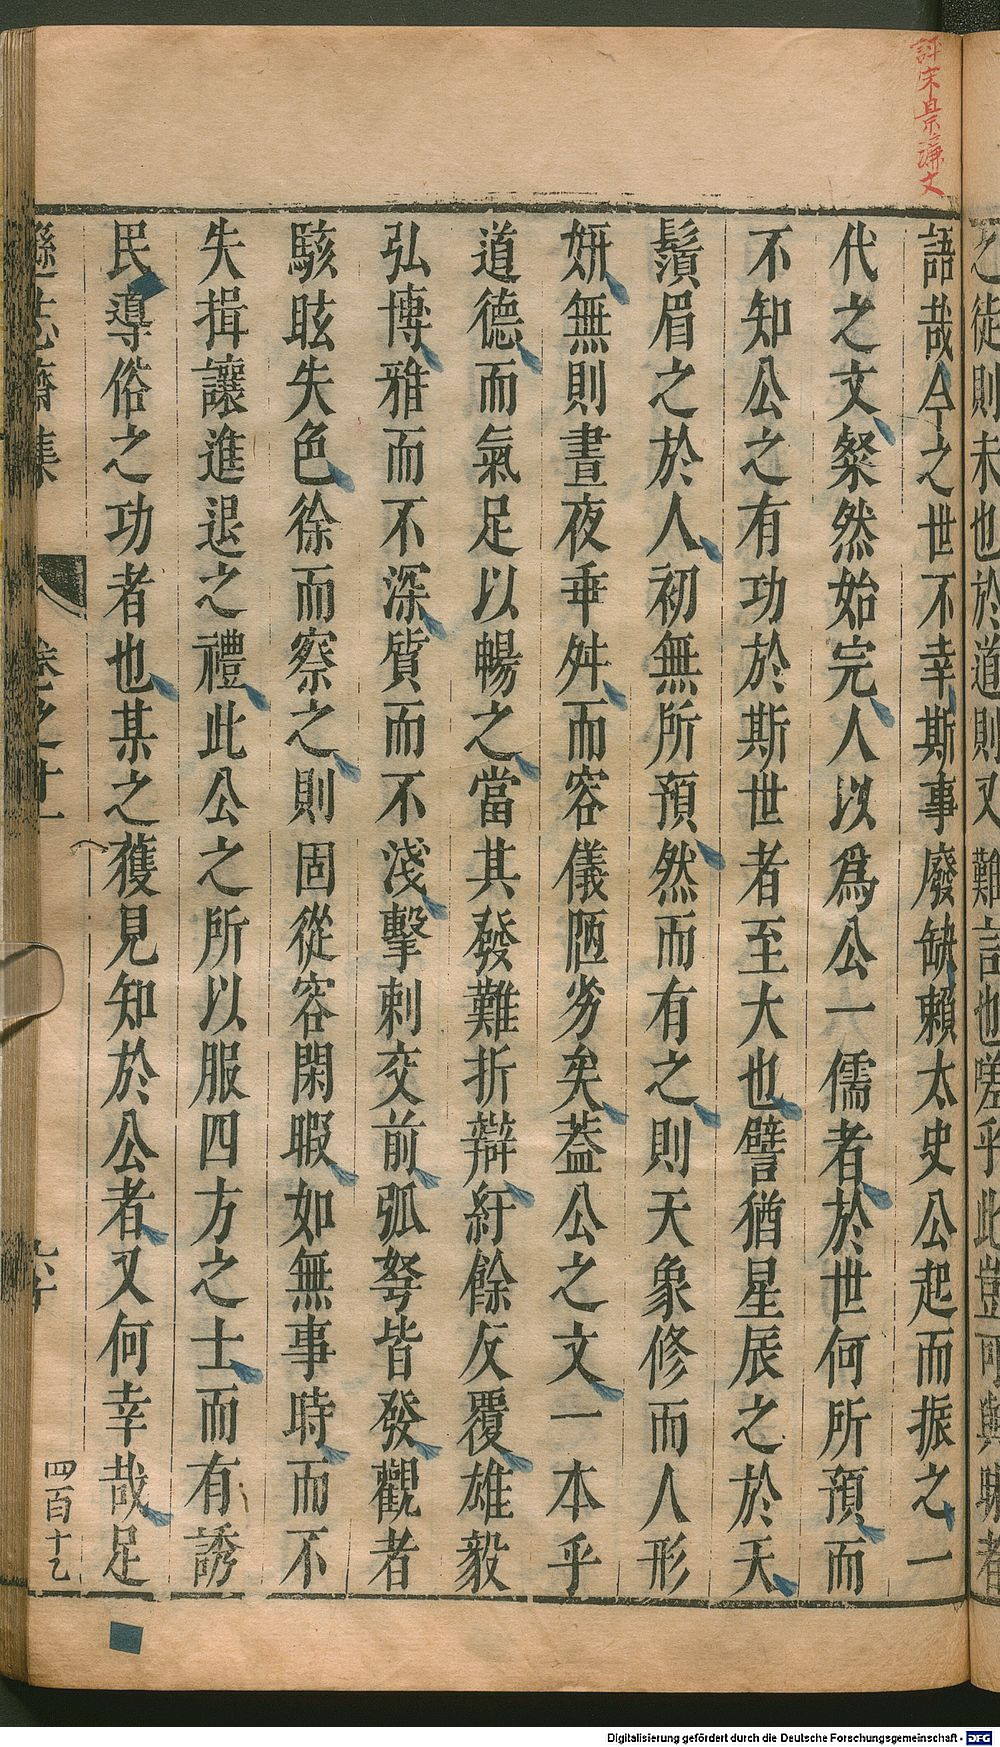 評宋景濂文
之徒則未也於道則又難言也嗟乎此豈可與
語哉今之世不幸斯事廢缺賴太史公起而振之一
代之文粲然始完人以爲公一儒者於世何所預而
不知公之有功於斯世者至大也譬猶星辰之於天
鬚眉之於人初無所預然而有之則天象修而人形
妍無則晝夜乖舛而容儀陋劣矣蓋公之文一本乎
道德而氣足以暢之當其發難折辯紆餘反覆雄毅
弘博雅而不深質而不淺擊刺交前弧弩皆發觀者
駭眩失色徐而察之則固從容閑暇如無事時而不
失揖讓進退之禮此公之所以服四方之士而有誘
民導俗之功者也某之獲見知於公者又何幸哉足
遜志齋集 卷之十一
四百十乙
Digitalisierung gefördert durch die Deutsche Forschungsgemeinschaft - DFG